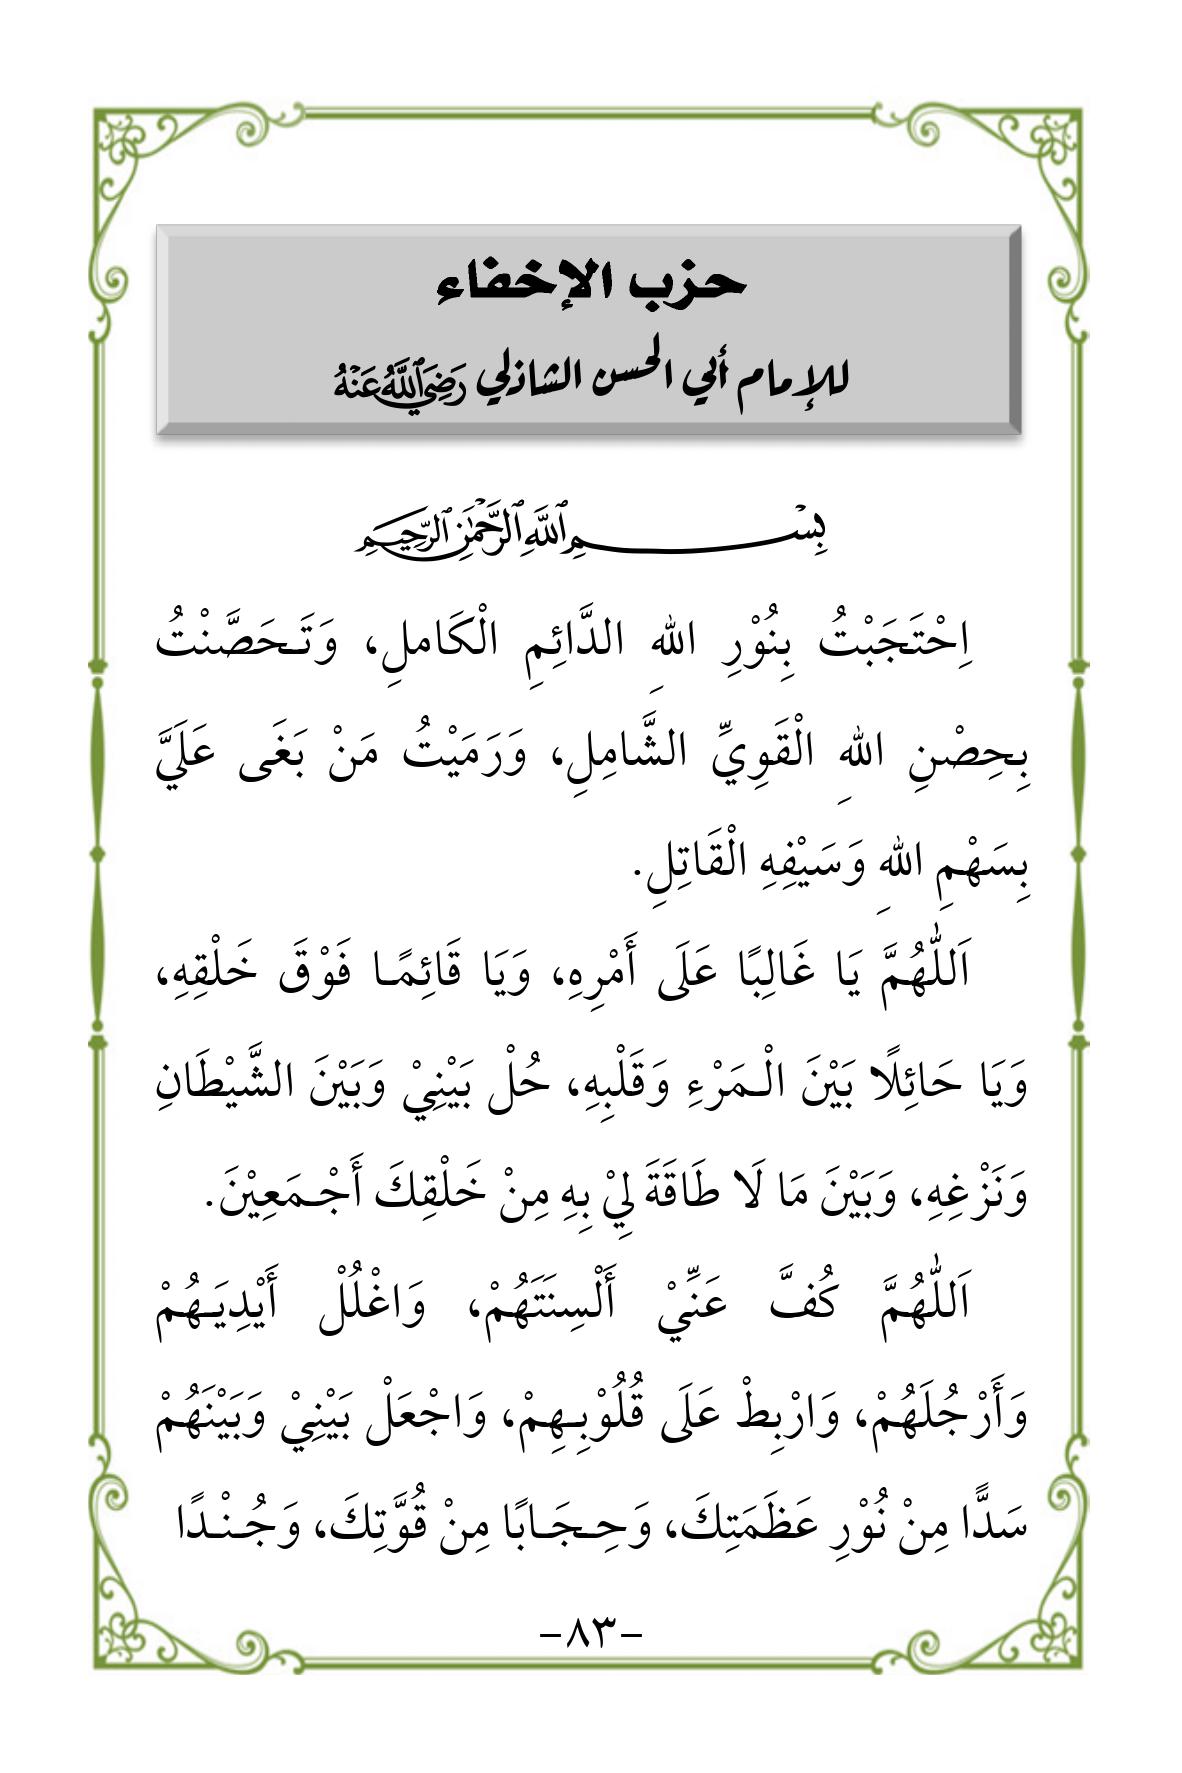 حزب الإخفاء
للإمام أبي الحسن الشاذلي رَضِيَ اللَّهُ عَنْهُ
بِسْمِ اللَّهِ الرَّحْمَٰنِ الرَّحِيمِ
اِحْتَجَبْتُ بِنُوْرِ اللهِ الدَّائِمِ الْكَاملِ، وَتَحَصَّنْتُ
بِحِصْنِ اللهِ الْقَوِيِّ الشَّامِلِ، وَرَمَيْتُ مَنْ بَغَى عَلَيَّ
بِسَهْمِ اللهِ وَسَيْفِهِ الْقَاتِلِ.
اَللّٰهُمَّ يَا غَالِبًا عَلَى أَمْرِهِ، وَيَا قَائِمًا فَوْقَ خَلْقِهِ،
وَيَا حَائِلًا بَيْنَ الْمَرْءِ وَقَلْبِهِ، حُلْ بَيْنِيْ وَبَيْنَ الشَّيْطَانِ
وَنَزْغِهِ، وَبَيْنَ مَا لَا طَاقَةَ لِيْ بِهِ مِنْ خَلْقِكَ أَجْمَعِيْنَ.
اَللّٰهُمَّ كُفَّ عَنِّيْ أَلْسِنَتَهُمْ، وَاغْلُلْ أَيْدِيَهُمْ
وَأَرْجُلَهُمْ، وَارْبِطْ عَلَى قُلُوْبِهِمْ، وَاجْعَلْ بَيْنِيْ وَبَيْنَهُمْ
سَدًّا مِنْ نُوْرِ عَظَمَتِكَ، وَحِجَابًا مِنْ قُوَّتِكَ، وَجُنْدًا
-٨٣-